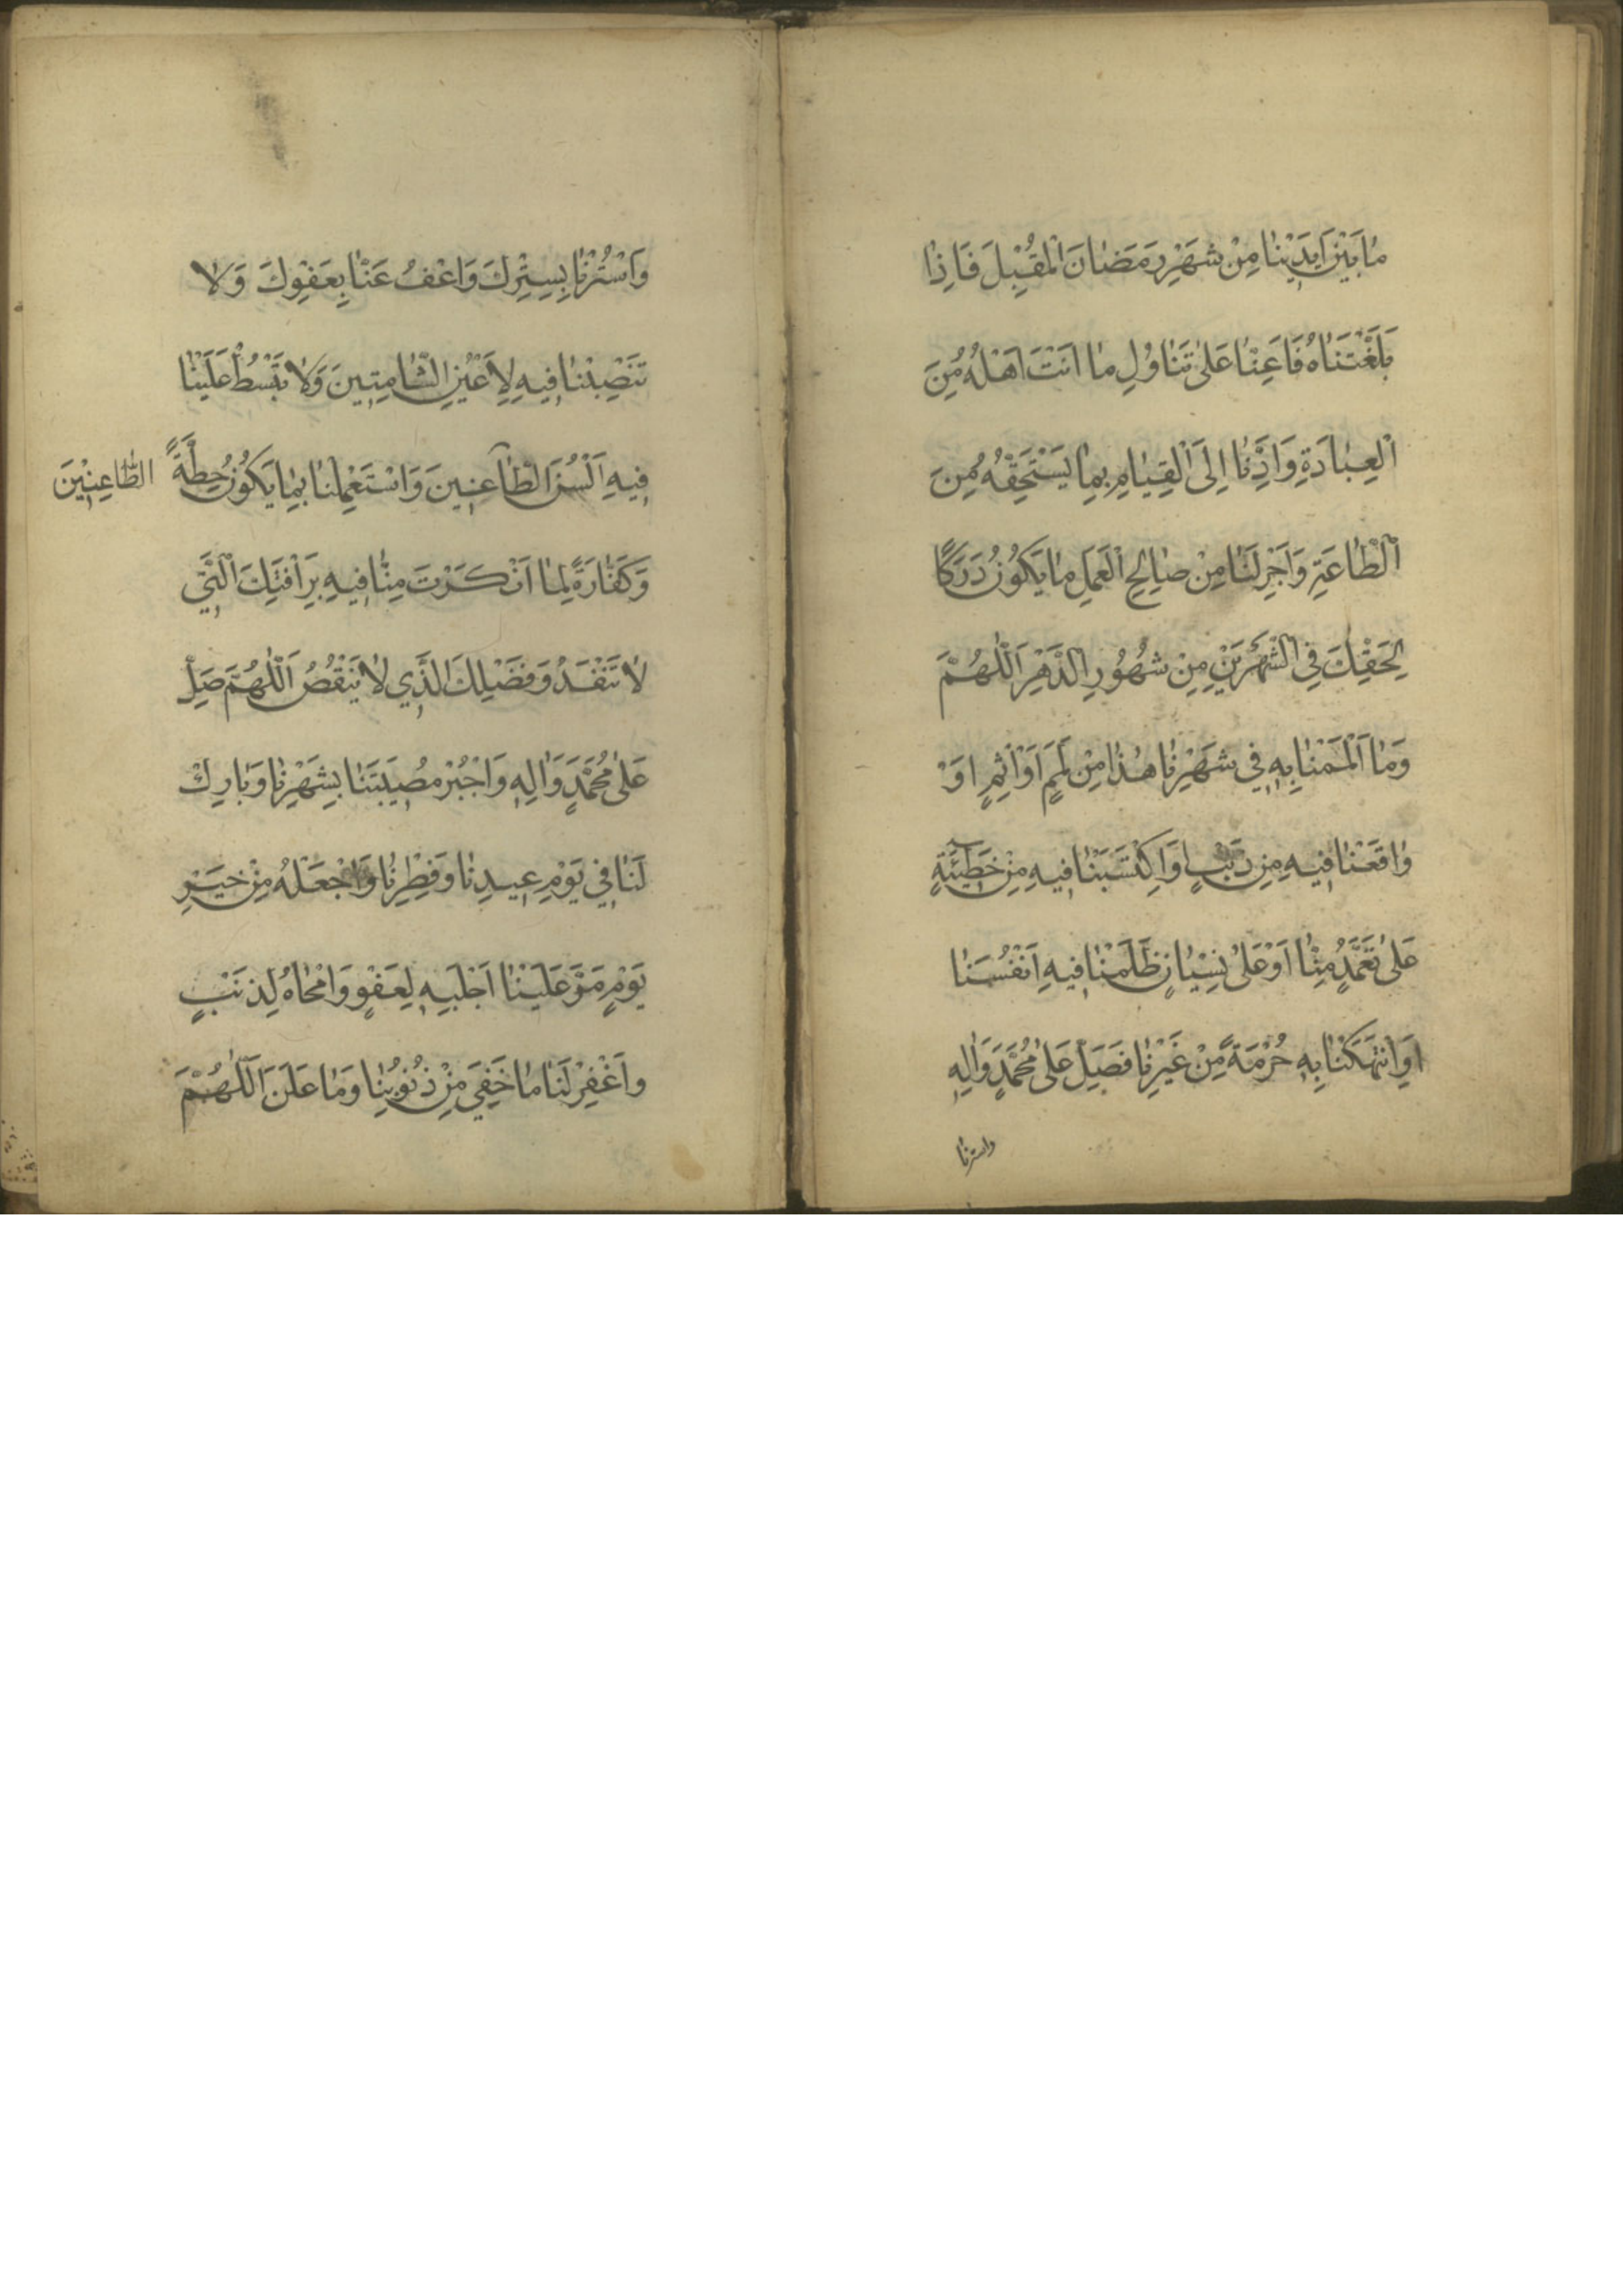 مَا بَيْنَ اَيْدِيْنَا مِنْ شَهْرِ رَمَضَانَ الْمُقْبِلَ فَاِذَا
بَلَّغْتَنَاهُ فَاَعِنَّا عَلَى تَنَاوُلِ مَا اَنْتَ اَهْلُهُ مِنَ
الْعِبَادَةِ وَاَدِّنَا اِلَى الْقِيَامِ بِمَا يَسْتَحِقُّهُ مِنَ
الْطَّاعَةِ وَاَجْرِ لَنَا مِنْ صَالِحِ الْعَمَلِ مَا يَكُوْنُ دَرَكًا
لِحَقِّكَ فِى الشَّهْرَيْنِ مِنْ شُهُوْرِ الدَّهْرِ اَللّٰهُمَّ
وَمَا اَلْمَمْنَا بِهِ فِي شَهْرِنَا هٰذَا مِنْ لَمَمٍ اَوْ اِثْمٍ اَوْ
وَاقَعْنَا فِيهِ مِن ذَنْبٍ وَاكْتَسَبْنَا فِيهِ مِنْ خَطِيْئَةٍ
عَلَى تَعَمُّدٍ مِنَّا اَوْ عَلَى نِسْيَانٍ ظَلَمْنَا فِيهِ اَنْفُسَنَا
اَوِ انْتَهَكْنَا بِهِ حُرْمَةً مِنْ غَيْرِنَا فَصَلِّ عَلَى مُحَمَّدٍ وَاٰلِهِ
واسترنا
وَاسْتُرْنَا بِسِتْرِكَ وَاعْفُ عَنَّا بِعَفْوِكَ وَلَا
تَنْصِبْنَا فِيهِ لِاَعْيُنِ الشَّامِتِينَ وَلَا تَبْسُطْ عَلَيْنَا
فِيهِ اَلْسُنَ الطَّاعِنِينَ وَاسْتَعْمِلْنَا بِمَا يَكُوْنُ حِطَّةً
الطَّاعِنِيْنَ
وَكَفَّارَةً لِمَا اَنْكَرْتَ مِنَّا فِيهِ بِرَاْفَتِكَ الَّتِي
لَا تَنْفَدُ وَفَضْلِكَ الَّذِي لَا يَنْقُصُ اَللّٰهُمَّ صَلِّ
عَلَى مُحَمَّدٍ وَاٰلِهِ وَاجْبُرْ مُصِيبَتَنَا بِشَهْرِنَا وَبَارِكْ
لَنَا فِي يَوْمِ عِيدِنَا وَفِطْرِنَا وَاجْعَلْهُ مِنْ خَيْرِ
يَوْمٍ مَرَّ عَلَيْنَا اَجْلَبِهِ لِعَفْوٍ وَامْحَاهُ لِذَنْبٍ
وَاغْفِرْ لَنَا مَا خَفِيَ مِنْ ذُنُوْبِنَا وَمَا عَلَنَ اَللّٰهُمَّ